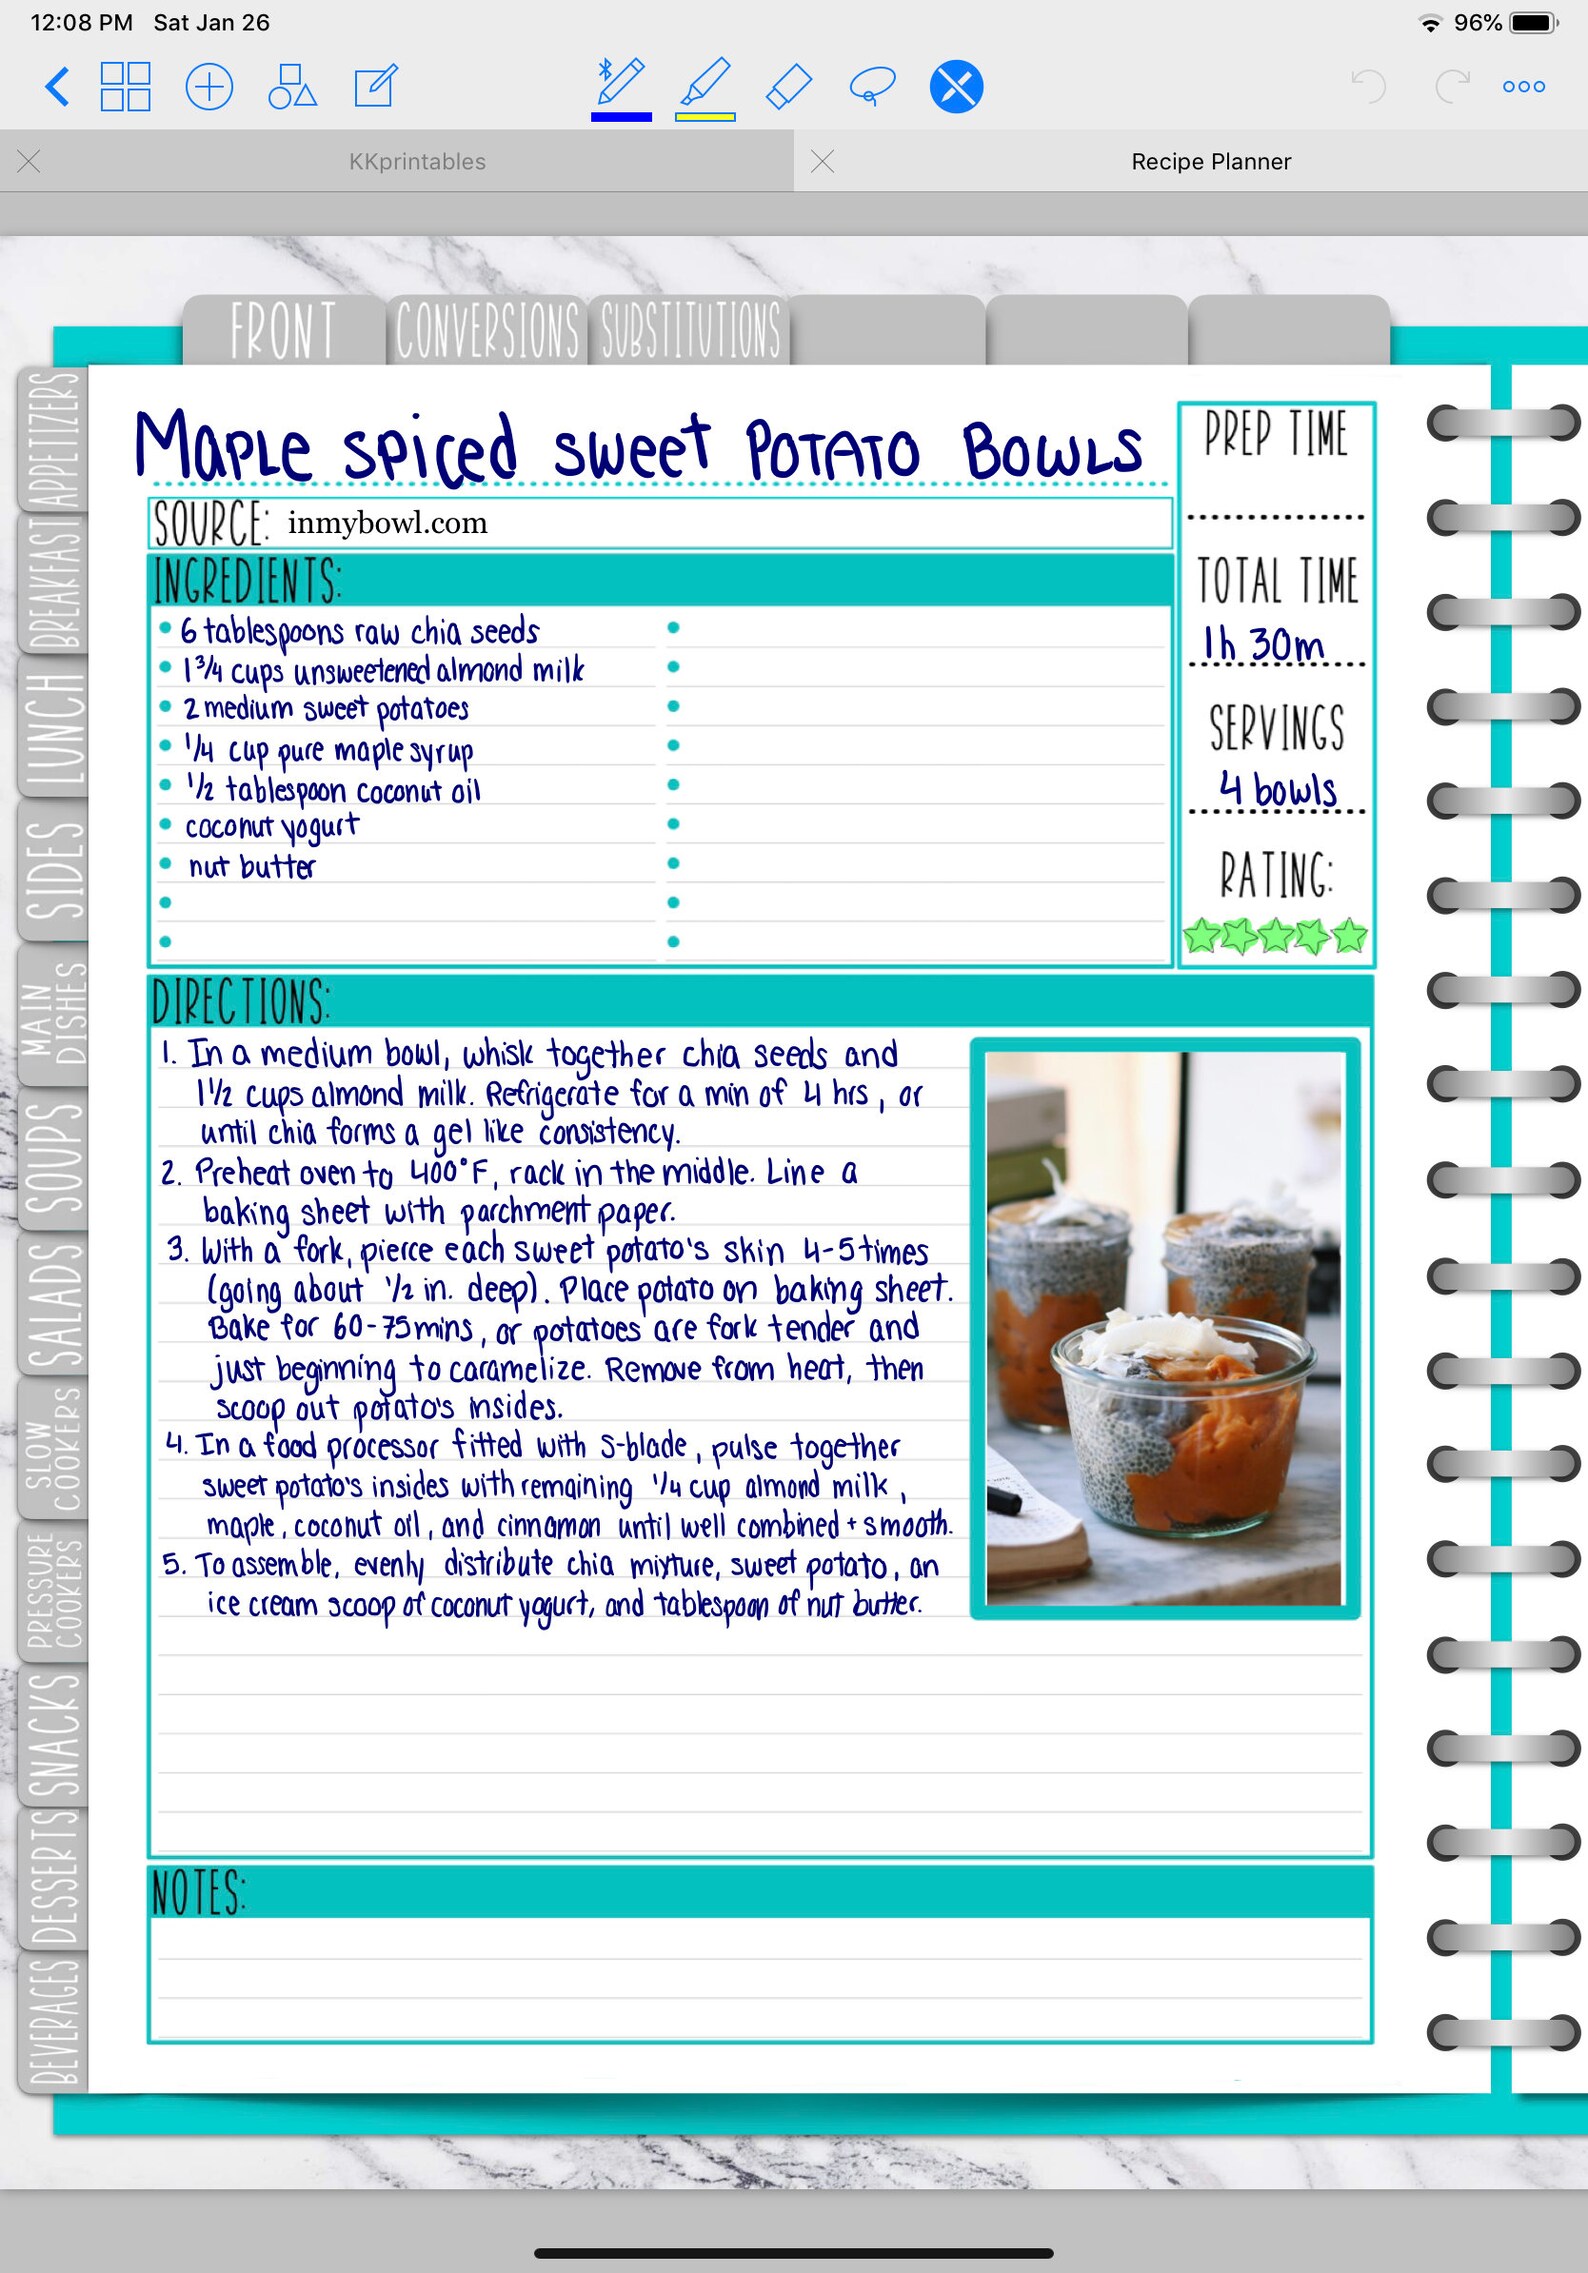 12:08 PM Sat Jan 26
96%
KKprintables
Recipe Planner
FRONT
CONVERSIONS
SUBSTITUTIONS
APPETIZERS
BREAKFAST
LUNCH
SIDES
MAIN
DISHES
SOUPS
SALADS
SLOW
COOKERS
PRESSURE
COOKERS
SNACKS
DESSERTS
BEVERAGES
MAPLE spiced sweet POTATO BOWLS
SOURCE: inmybowl.com
PREP TIME
TOTAL TIME
1h 30m
SERVINGS
4 bowls
RATING:
INGREDIENTS:
6 tablespoons raw chia seeds
1 3/4 cups unsweetened almond milk
2 medium sweet potatoes
1/4 cup pure maple syrup
1/2 tablespoon coconut oil
coconut yogurt
nut butter
DIRECTIONS:
1. In a medium bowl, whisk together chia seeds and
1 1/2 cups almond milk. Refrigerate for a min of 4 hrs, or
until chia forms a gel like consistency.
2. Preheat oven to 400°F, rack in the middle. Line a
baking sheet with parchment paper.
3. With a fork, pierce each sweet potato's skin 4-5 times
(going about 1/2 in. deep). Place potato on baking sheet.
Bake for 60-75 mins, or potatoes are fork tender and
just beginning to caramelize. Remove from heat, then
scoop out potato's insides.
4. In a food processor fitted with S-blade, pulse together
sweet potato's insides with remaining 1/4 cup almond milk,
maple, coconut oil, and cinnamon until well combined + smooth.
5. To assemble, evenly distribute chia mixture, sweet potato, an
ice cream scoop of coconut yogurt, and tablespoon of nut butter.
NOTES: